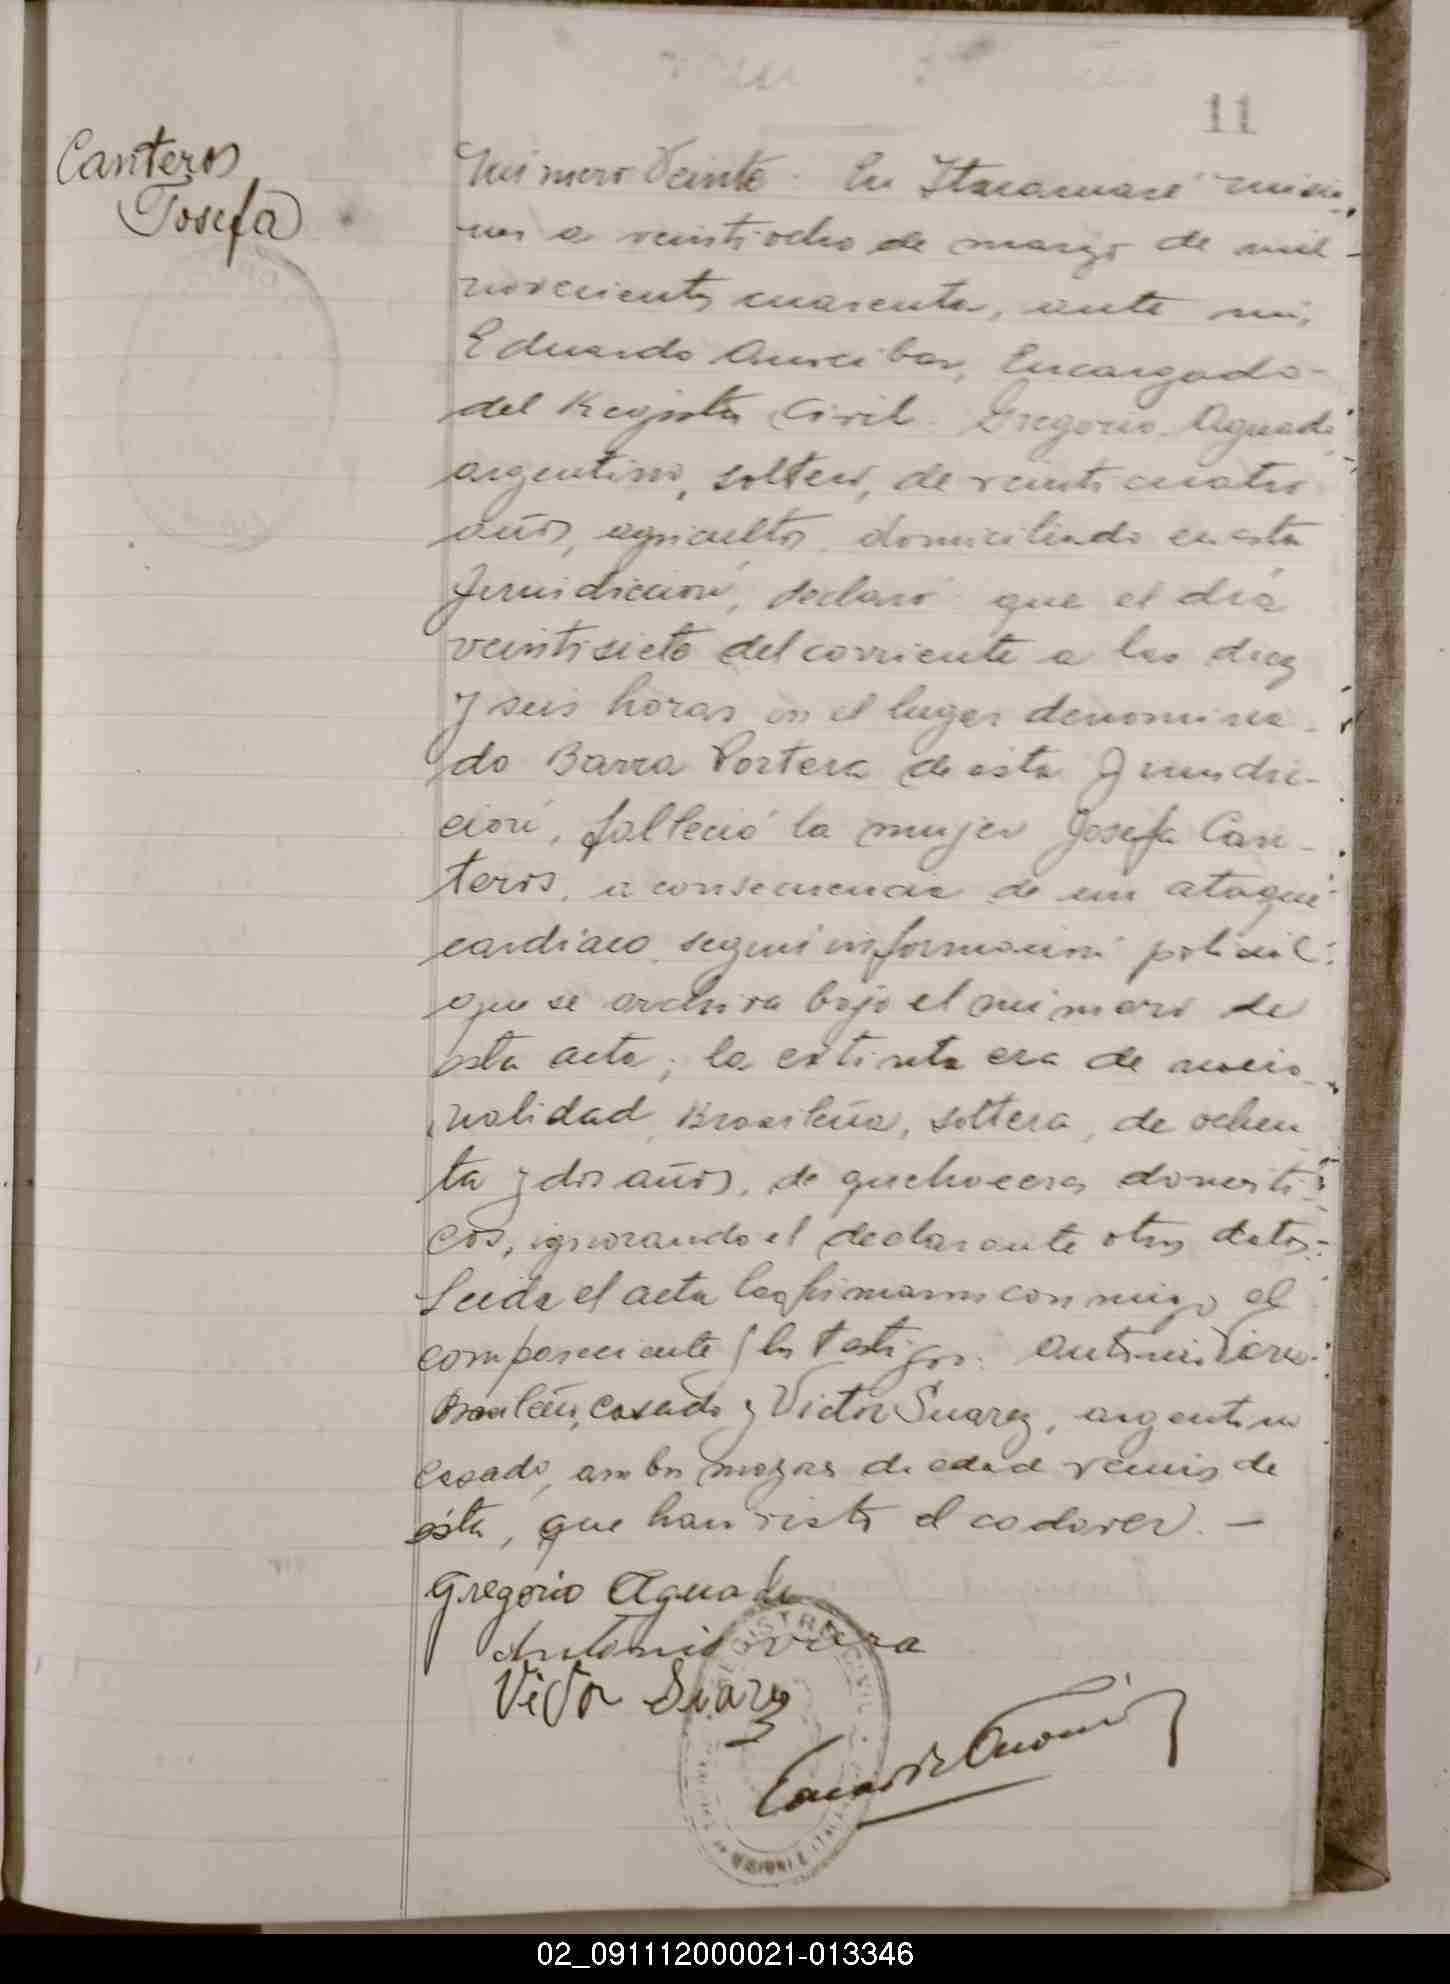 11
Canteros
Josefa
Número Veinte. En Itacaruaré misio
nes a veintiocho de marzo de mil
novecientos cuarenta, ante mi,
Eduardo Encargado
del Registro Civil. Gregorio Aguado
argentino, soltero, de veinticuatro
años, agricultor, domiciliado en esta
Jurisdicción, declaró que el día
veintisiete del corriente a las diez
y seis horas en el lugar denomina-
do Barra Portera de esta Jurisdic-
ción, falleció la mujer Josefa Can-
teros, a consecuencia de un ataque
cardiaco según información policial
que se archiva bajo el número de
esta acta; la extinta era de nacio-
nalidad Brasileña, soltera, de ochen
ta y dos años, de quehaceres domesti-
cos, ignorando el declarante otros datos.
Leida el acta la firmaron conmigo el
compareciente y los testigos: Antonio
Brasileño, casado y Victor Suarez, argentino
casado, ambos mayores de edad vecinos de
ésta, que han visto el cadaver. —
Gregorio Aguado
Antonio viera
Victor Suarez
REGISTRO CIVIL
MISIONES
02_091112000021-013346